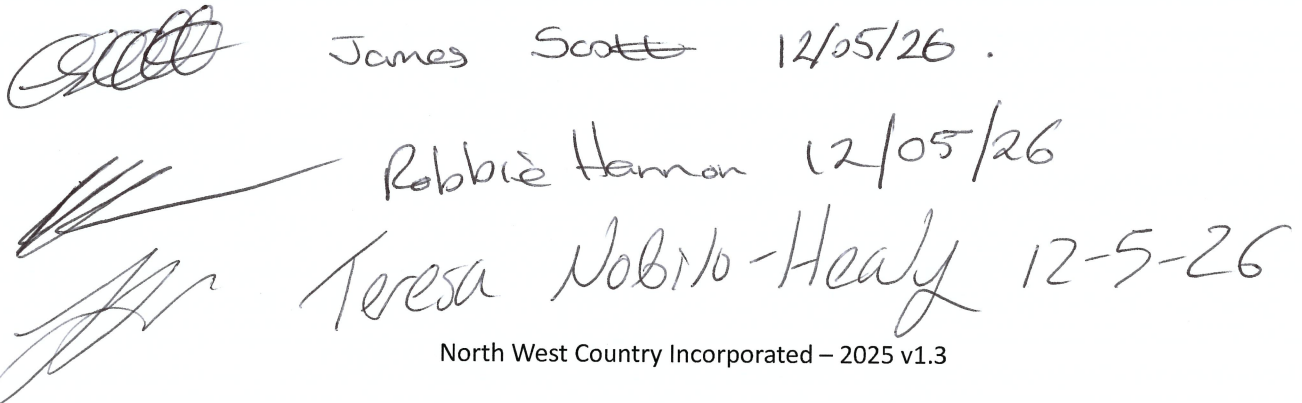 James Scott 12/05/26 .
Robbie Hannon 12/05/26
Teresa Nobilo-Healy 12-5-26
North West Country Incorporated – 2025 v1.3